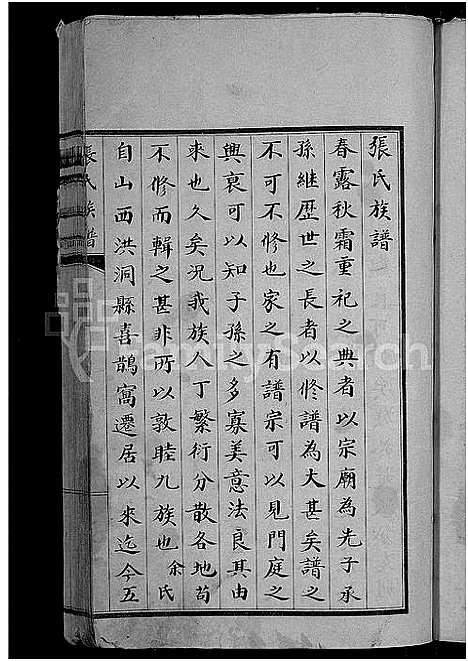 張氏族譜
春露秋霜重祀之典者以宗廟為先子承
孫継歷世之長者以修譜為大甚矣譜之
不可不修也家之有譜宗可以見門庭之
興衰可以知子孫之多寡美意法良其由
來也久矣況我族人丁繁衍分散各地苟
不修而輯之甚非所以敦睦九族也余氏
自山西洪洞縣喜鵲窩遷居以來迄今五
張氏族譜
FamilySearch